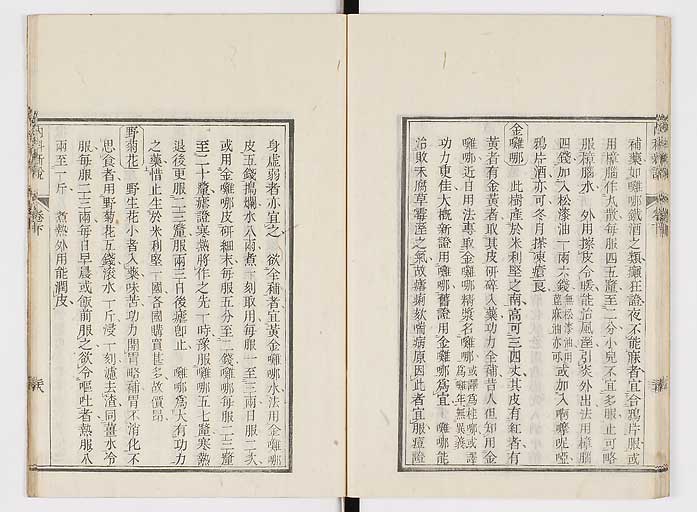 補藥如㗲哪鐵酒之類癲狂證夜不能寐者宜合鴉片服或
用樟腦作丸散每服四五釐至二分小兒不宜多服止可略
服樟腦水 外用擦皮令暖能治風溼引炎外出法用樟腦
四錢加入松漆油一兩六錢無松漆油用萞麻油亦可或加入啊嚤呢啞
鴉片酒亦可冬月搽凍瘡良
金㗲哪 此樹產於米利堅之南高可三四丈其皮有紅者有
黃者有金黃者取其皮研碎入藥功力全補昔人但知用金
㗲哪近日用法專取金㗲哪精漿名㗲哪
功力更佳大概新證用㗲哪舊證用金㗲哪爲宜 㗲哪能
治敗木腐草霉溼之氣故瘧痢欬喘病原因此者宜服瘧證
身虛弱者亦宜之 欲全補者宜黃金㗲哪水法用金㗲哪
皮五錢搗爛水八兩煮一刻取用每服一至三兩日服二次
或用金㗲哪皮研細末每服五分至二錢㗲哪每服二三釐
至二十釐瘧證寒熱將作之先一時豫服㗲哪五七釐寒熱
退後更服二三釐服兩三日後瘧卽止 㗲哪爲大有功力
之藥惜止生於米利堅一國各國購買甚多故價昂
野菊花 野生花小者入藥味苦功力開胃略補胃不消化不
思食者用野菊花五錢滾水一斤浸一刻濾去渣同薑水冷
服每服二三兩每日早晨或飯前服之欲令嘔吐者熱服八
兩至一斤 煮熱外用能潤皮
內科新說 卷下